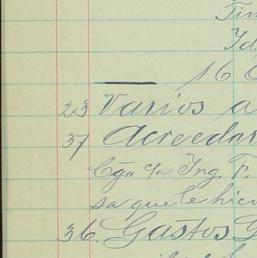 Tim
Id
16 O
23 Varios a
37 Acreedor
Cgo c/o Ing. F.
sa que le hici
36. Gastos G